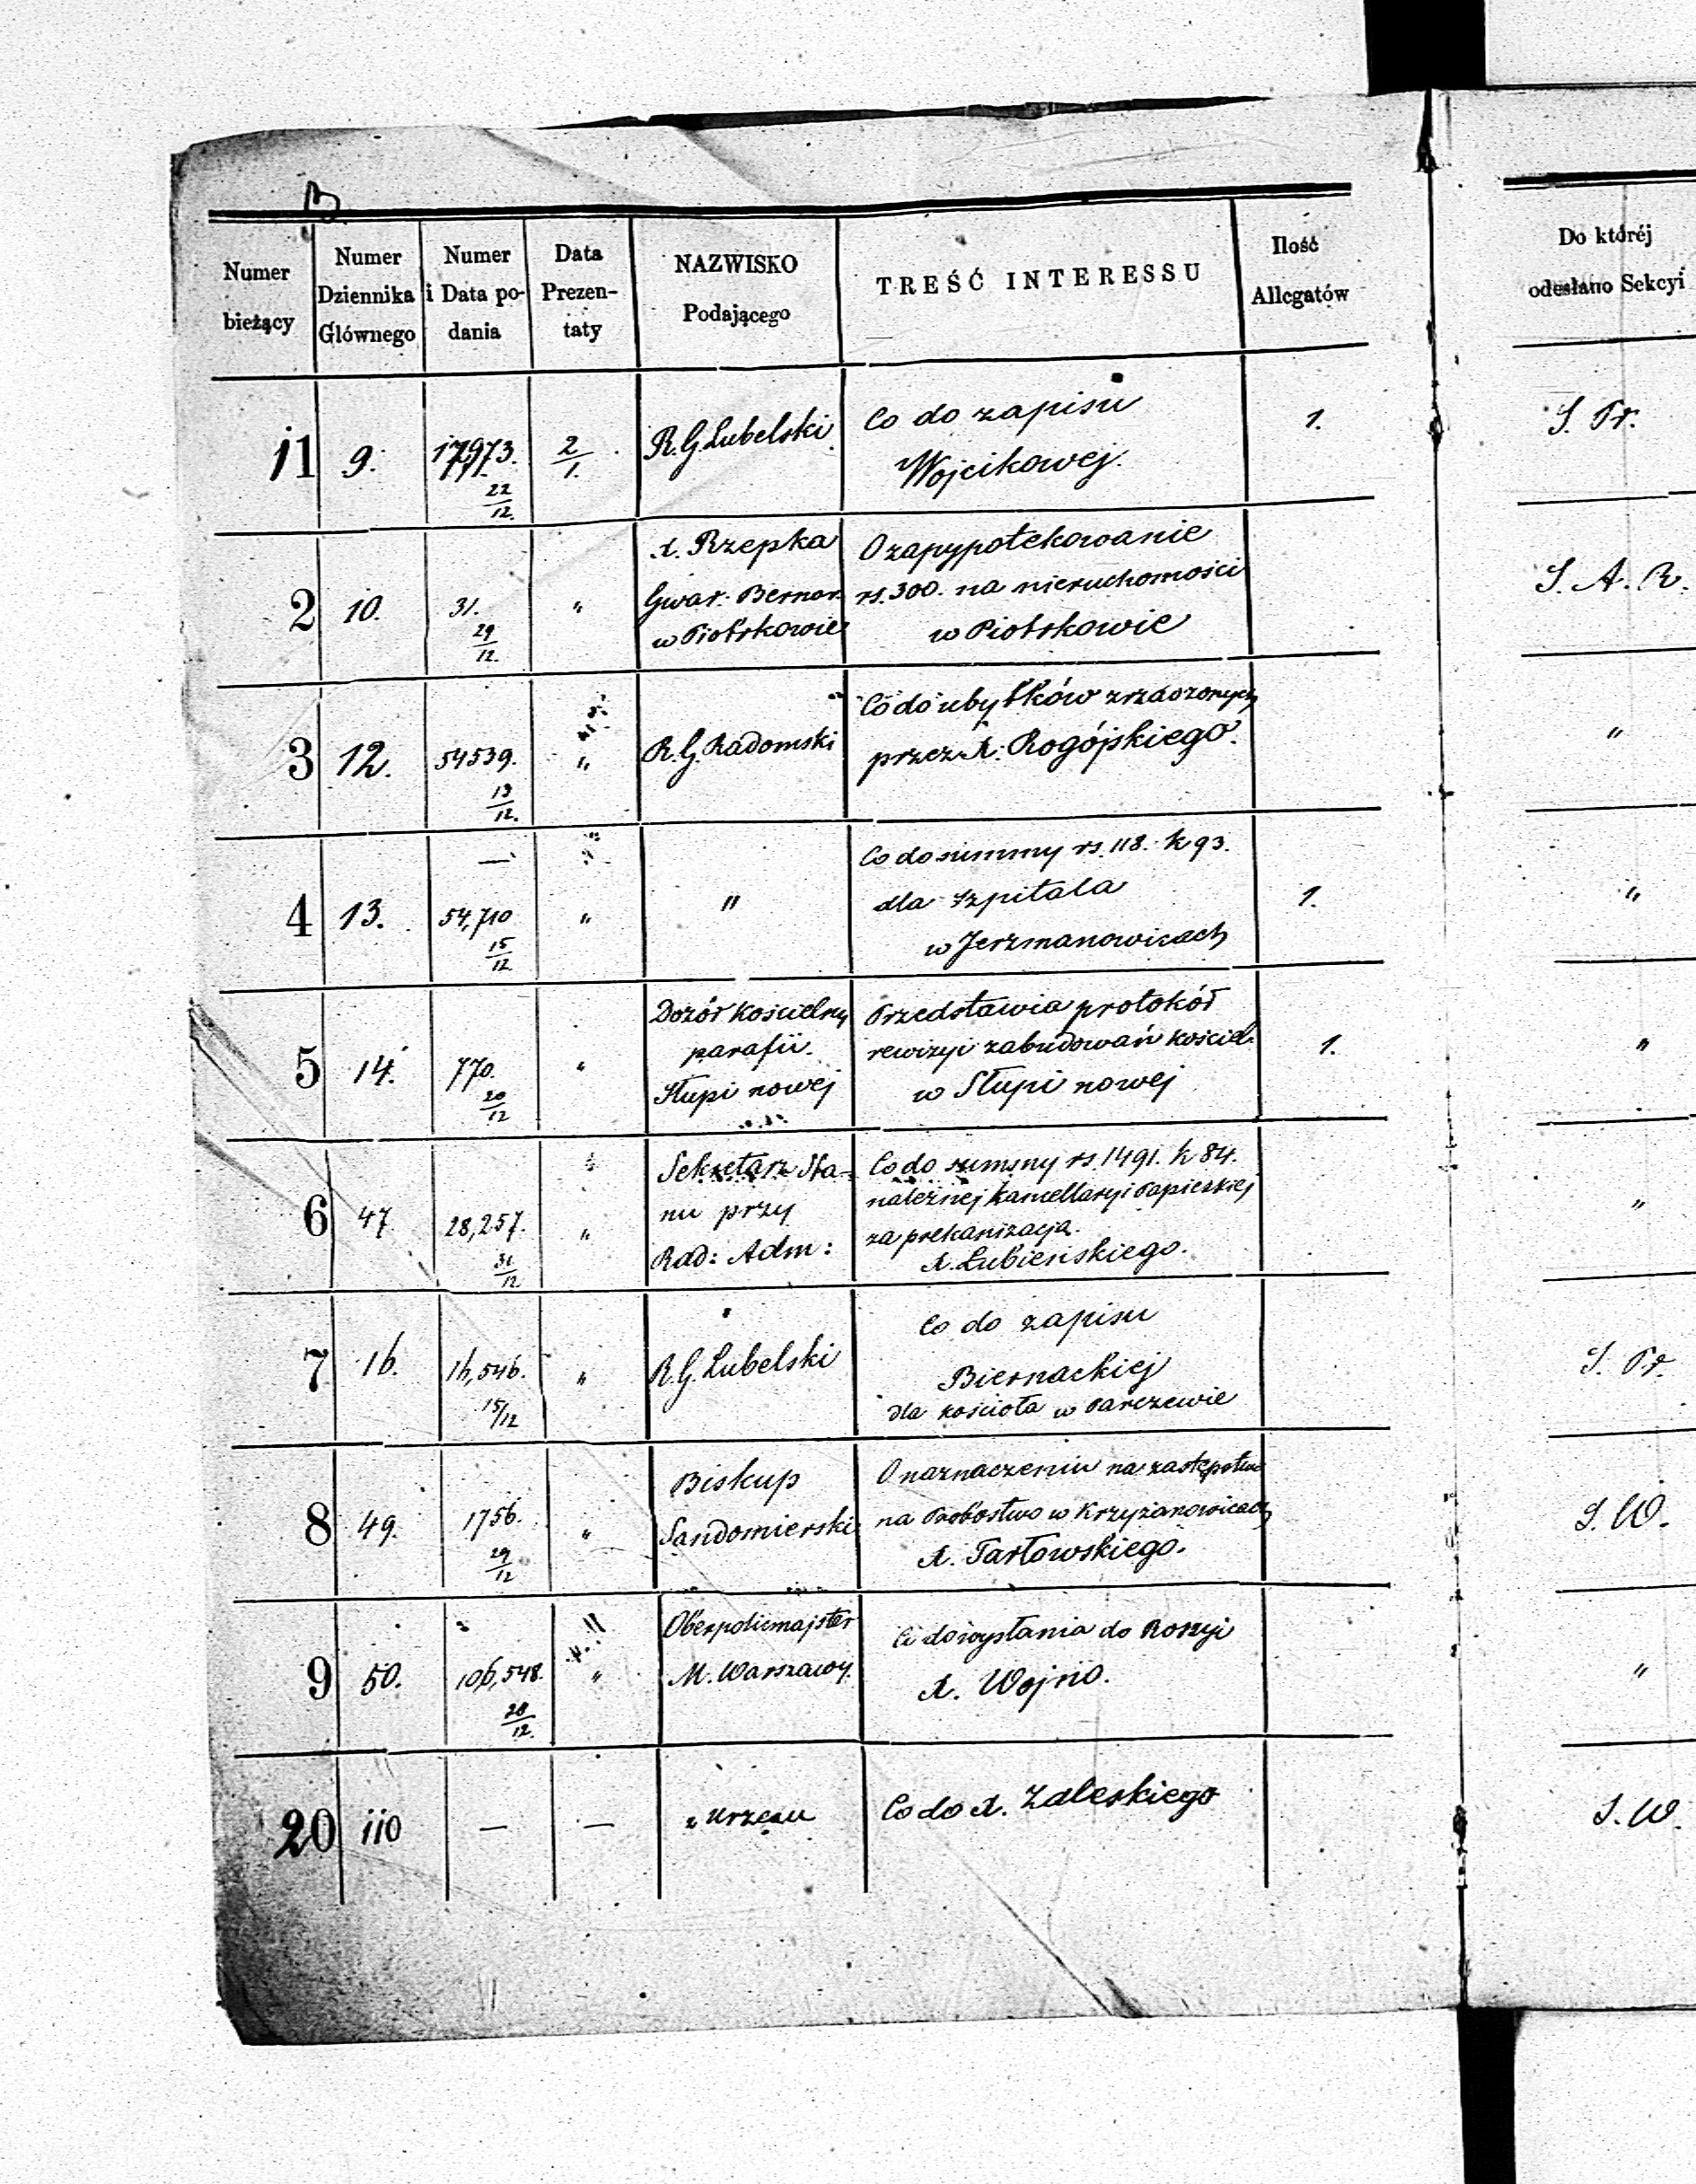 Numer bieżący
Numer Dziennika Głównego
Numer i Data podania
Data Prezentaty
NAZWISKO Podającego
TREŚĆ INTERESSU
Ilość Allegatów
Do któréj odesłano Sekcyi
11 9. 17973. 22/12. 2/1. R. G. Lubelski Co do zapisu 1. S. Pr.
Wojcikowej.
X. Rzepka O zapypotekowanie
2 10. 31. 29/12. " Gwar. Bernar. rs. 300. na nieruchomości S. A. R.
w Piotrkowie w Piotrkowie
Co do ubytków zrządzonych
3 12. 54539. 13/12. " R. G. Radomski przez X. Rogójskiego. "
Co do summy rs. 118. k 93.
4 13. 54,710 15/12. " " dla Szpitala 1. "
w Jerzmanowicach
Dozór Kościelny Przedstawia protokół
5 14. 770. 20/12 " parafii rewizyi zabudowań kościel. 1. "
Słupi nowej w Słupi nowej
Sekretarz Sta- Co do summy rs. 1491. k 84.
6 47 28,257. 31/12 " nu przy należnej kancellaryi Papiezkiej "
Rad: Adm: za prekanizacją
X. Łubieńskiego.
Co do zapisu
7 16. 16,546. 15/12 " R. G. Lubelski Biernackiej S. Pr.
dla kościoła w Parczewie
Biskup O naznaczeniu na zastępstwo
8 49. 1756. 29/12 " Sandomierski na Probostwo w Krzyżanowicach S. W.
X. Tarłowskiego.
Oberpolicmajster Co do wysłania do Rossyi
9 50. 106,548. 28/12. " M. Warszawy. X. Wojno. "
20 110 — — z urzędu Co do X. Zaleskiego S. W.